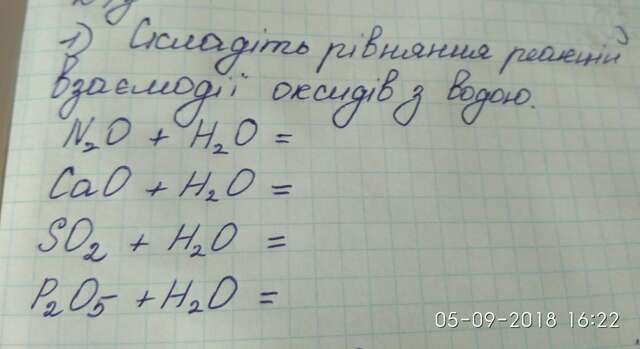 1) Складіть рівняння реакцій
взаємодії оксидів з водою.
N₂O + H₂O =
CaO + H₂O =
SO₂ + H₂O =
P₂O₅ + H₂O =
05-09-2018 16:22